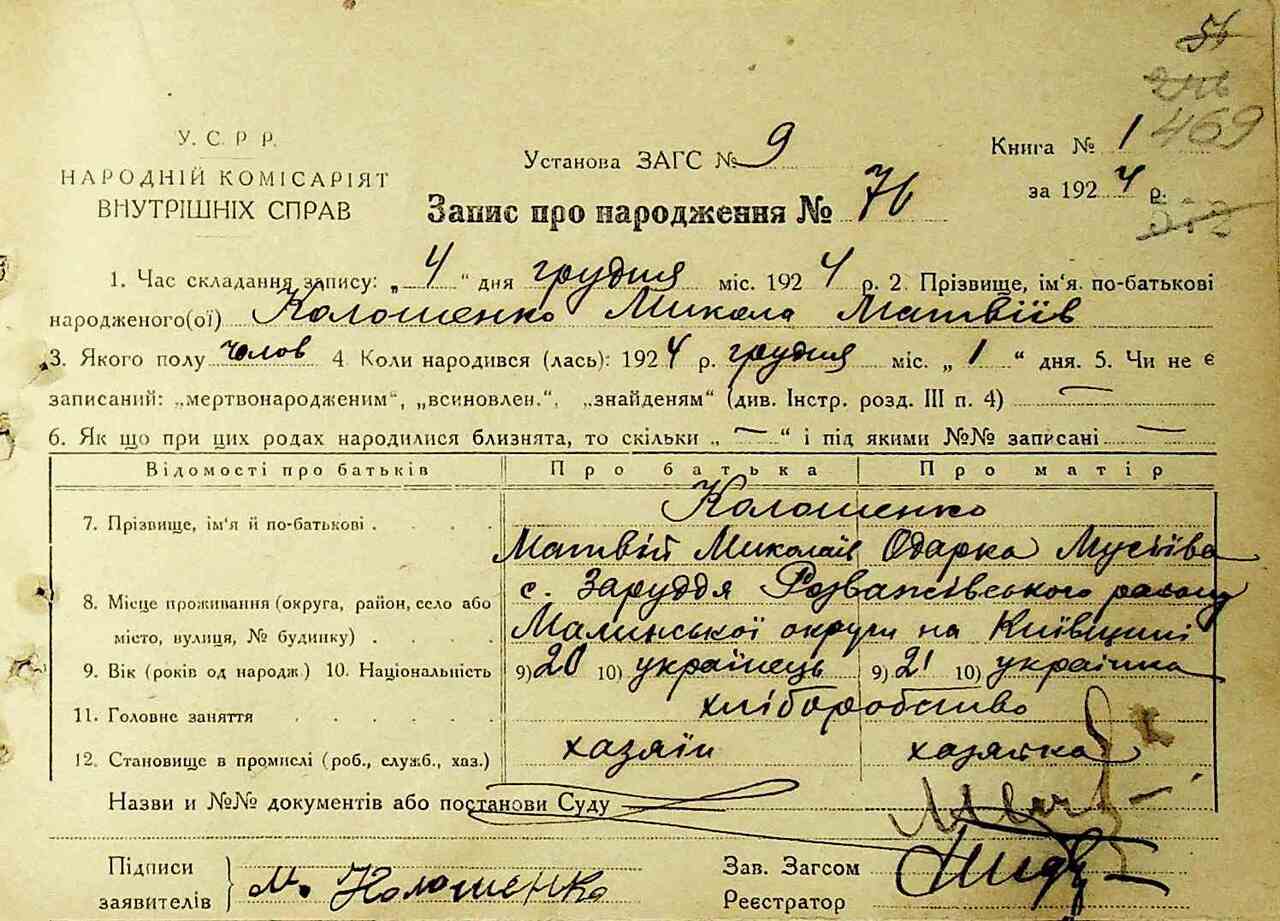 56
469
У. С. Р Р.
НАРОДНІЙ КОМІСАРІЯТ
ВНУТРІШНІХ СПРАВ
Установа ЗАГС № 9
Книга № 1
за 1924 р.
Запис про народження № 76
1. Час складання запису: „4“ дня грудня міс. 1924 р. 2. Прізвище, ім‘я. по-батькові
народженого(ої) Колошенко Микола Матвіїв
3. Якого полу чолов 4 Коли народився (лась): 1924 р. грудня міс. „1“ дня. 5. Чи не є
записаний: „мертвонародженим“, „всиновлен.“, „знайденям“ (див. Інстр. розд. III п. 4) —
6. Як що при цих родах народилися близнята, то скільки „—“ і під якими №№ записані —
Відомості про батьків Про батька Про матір
7. Прізвище, ім‘я й по-батькові . . . . Колошенко
Матвій Миколаїв Одарка Мусіїва
8. Місце проживання (округа, район, село або с. Заруддя Розважівського району
місто, вулиця, № будинку) . . . . Малинської округи на Київщині
9. Вік (років од народж.) 10. Національність 9) 20 10) українець 9) 21 10) українка
11. Головне заняття . . . . . хліборобство
12. Становище в промислі (роб., служб., хаз.) хазяїн хазяйка
Назви и №№ документів або постанови Суду —
Підписи
заявителів
М. Колошенко
Зав. Загсом
Реєстратор